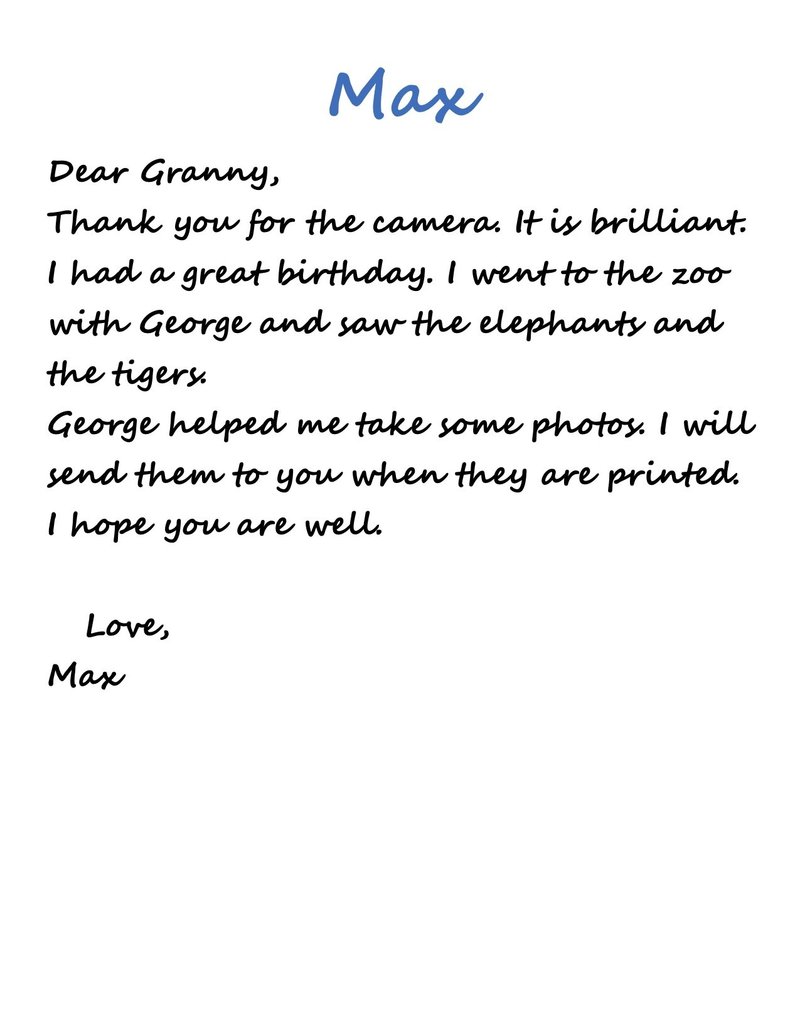 Max
Dear Granny,
Thank you for the camera. It is brilliant.
I had a great birthday. I went to the zoo
with George and saw the elephants and
the tigers.
George helped me take some photos. I will
send them to you when they are printed.
I hope you are well.
Love,
Max